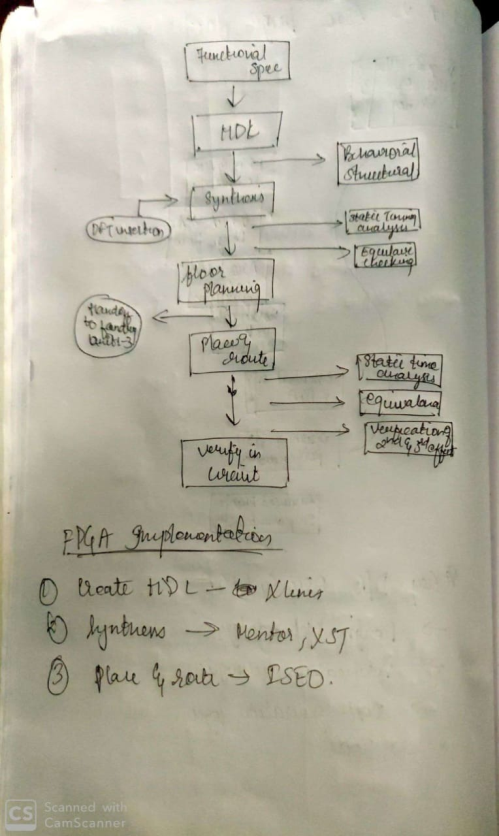 Functional
Spec
HDL
Behavioral
Structural
Synthesis
DFT insertion
Static Timing
analysis
Equilave
checking
floor
planning
Handoff
to
Place &
route
Static time
analysis
Equivalana
Verification of
2nd & 3rd effect
Verify in
circuit
FPGA Implementation
① Create HDL - Xlinis
② Synthesis → Mentor, XST
③ Place & route → ISED.
CS Scanned with
CamScanner